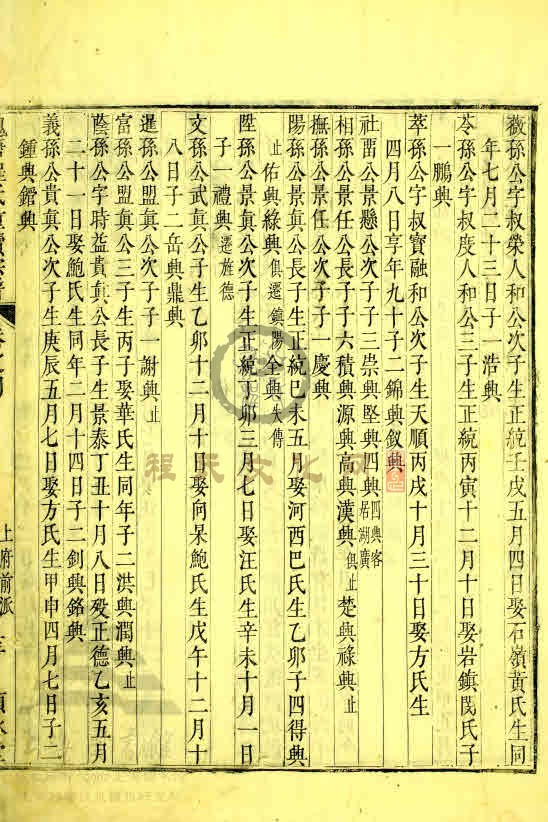 薇孫公字叔榮人和公次子生正統壬戌五月四日娶石嶺黃氏生同
年七月二十三日子一浩興
苓孫公字叔度人和公三子生正統丙寅十二月十日娶岩鎮閔氏子
一鵬興
萃孫公字叔寳融和公次子生天順丙戌十月三十日娶方氏生
四月八日享年九十子二錦興釵興
社畱公景懸公次子子三崇興堅興四興四興客居湖廣
相孫公景任公長子子六積興源興高興漢興俱止楚興祿興止
撫孫公景任公次子子一慶興
陽孫公景眞公長子生正統己未五月娶河西巴氏生乙卯子四得興
止佑興綠興俱遷鎮陽全興失傳
陞孫公景眞公次子生正統丁卯三月七日娶汪氏生辛未十月一日
子一禮興遷旌德
文孫公武眞公子生乙卯十二月十日娶向杲鮑氏生戊午十二月十
八日子二岳興鼎興
暹孫公盟眞公次子子一謝興止
富孫公盟眞公三子生丙子娶華氏生同年子二洪興潤興止
蔭孫公字時益貴眞公長子生景泰丁丑十月八日殁正德乙亥五月
二十一日娶鮑氏生同年二月十四日子二釗興銘興
義孫公貴眞公次子生庚辰五月七日娶方氏生甲申四月七日子二
鍾興鎦興
上府前派
程氏文化网